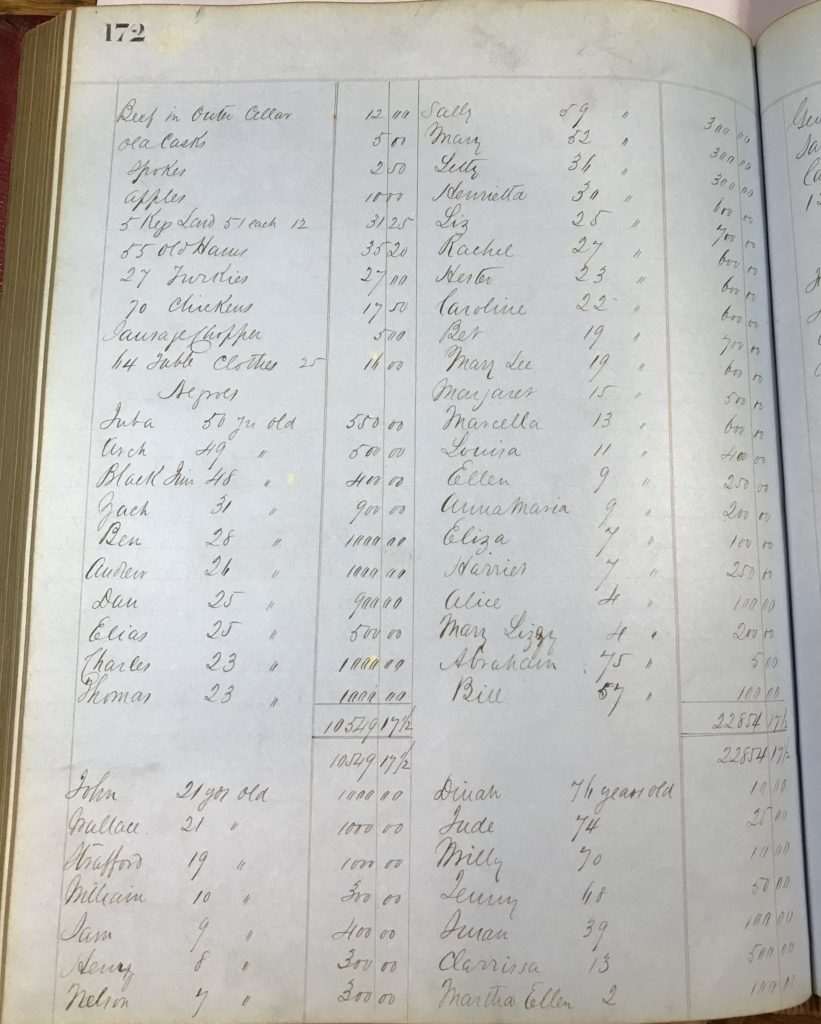 172
Beef in Outer Cellar 12 00
Old Casks 5 00
Spokes 2 50
Apples 10 00
5 Kegs Lard 51 each 12 31 25
55 Old Hams 35 20
27 Turkies 27 00
70 Chickens 17 50
Sausage Chopper 5 00
64 Table Clothes 25 16 00
Negroes
Juba 50 yrs old 550 00
Arch 49 " 500 00
Black Jim 48 " 400 00
Zach 31 " 900 00
Ben 28 " 1000 00
Andrew 26 " 1000 00
Dan 25 " 900 00
Elias 25 " 500 00
Charles 23 " 1000 00
Thomas 23 " 1000 00
10549 17 1/2
10549 17 1/2
John 21 yrs old 1000 00
Wallace 21 " 1000 00
Strafford 19 " 1000 00
William 10 " 300 00
Sam 9 " 400 00
Henry 8 " 300 00
Nelson 7 " 300 00
Sally 59 " 300 00
Mary 52 " 300 00
Letty 36 " 300 00
Henrietta 30 " 600 00
Liz 25 " 700 00
Rachel 27 " 600 00
Hester 23 " 600 00
Caroline 22 " 600 00
Bet 19 " 700 00
Mary Lee 19 " 600 00
Margaret 15 " 500 00
Marcella 13 " 600 00
Louisa 11 " 400 00
Ellen 9 " 250 00
Anna Maria 9 " 200 00
Eliza 7 " 100 00
Harriet 7 " 250 00
Alice 4 " 100 00
Mary Lizzy 4 " 200 00
Abraham 75 " 5 00
Bill 57 " 100 00
22854 17 1/2
22854 17 1/2
Dinah 76 years old 10 00
Jude 74 25 00
Milly 70 10 00
Jenny 68 50 00
39 100 00
Clarrissa 13 500 00
Martha Ellen 2 100 00